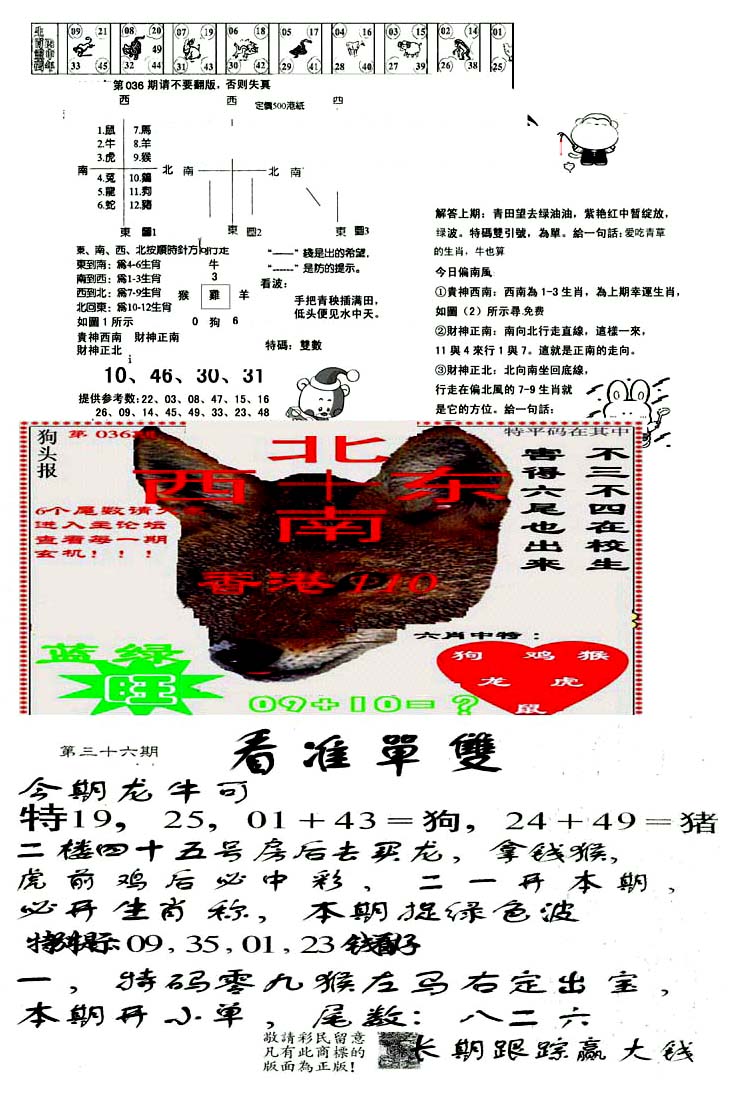 09 21 08 20 07 19 06 18 05 17 04 16 03 15 02 14 01
49
33 45 32 44 31 43 30 42 29 41 28 40 27 39 26 38 25
第036期请不要翻版，否则失真
西 西 四
定價500港紙
1.鼠 7.馬
2.牛 8.羊
3.虎 9.猴
南 北 南 北 南
4.兔 10.鷄
5.龍 11.狗
6.蛇 12.豬
東 圖1 東 圖2 東 圖3
東、南、西、北按順時針方向行走
東到南：爲4-6生肖
南到西：爲1-3生肖
西到北：爲7-9生肖
北回東：爲10-12生肖
如圖1所示
貴神西南 財神正南
財神正北
牛
3
猴 雞 羊
0 狗 6
“——”綫是出的希望，
“------”是防的提示。
看波：
手把青秧插满田，
低头便见水中天。
特碼：雙數
10、46、30、31
提供参考数：22、03、08、47、15、16
26、09、14、45、49、33、23、48
解答上期：青田望去绿油油，紫艳红中暂绽放，
绿波。特碼雙引號，為單。給一句話：爱吃青草
的生肖，牛也算
今日偏南風
①貴神西南：西南為1-3生肖，為上期幸運生肖，
如圖（2）所示尋.免费
②財神正南：南向北行走直線，這樣一來，
11與4來行1與7。這就是正南的走向。
③財神正北：北向南坐回底線，
行走在偏北風的7-9生肖就
是它的方位。給一句話：
狗头报
第 036期
特平码在其中
北
西 十 东
南
香港 110
不三不四在校生
害得六尾也出来
6个尾数请
进入主论坛
查看每一期
玄机！！！
六肖中特：
狗 鸡 猴
龙 虎
鼠
蓝绿
旺
09+10=?
第三十六期
看准單雙
今期龙牛可
特19，25，01＋43＝狗，24＋49＝猪
二楼四十五号房后去买龙，拿钱猴，
虎前鸡后必中彩，二一开本期，
必开生肖称，本期捉绿色波
09，35，01，23
一，特码零九猴左马右定出宝，
本期开小单，尾数：八二六
敬請彩民留意
凡有此商標的
版面為正版！
长期跟踪赢大钱